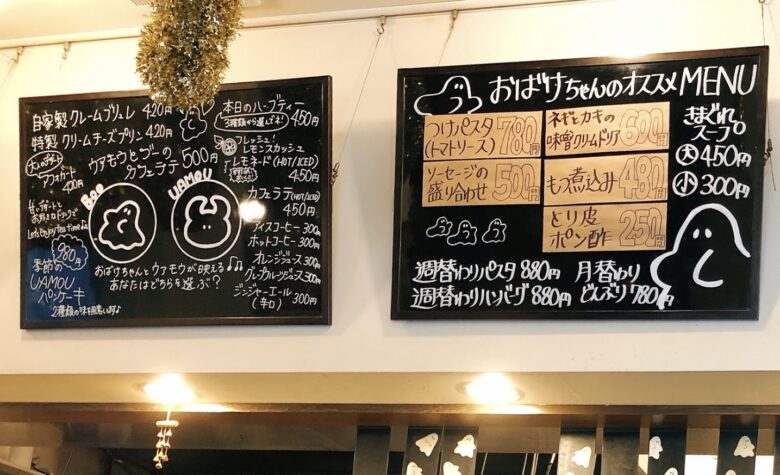 自家製 クレームブリュレ 420円
特製 クリームチーズプリン 420円
アフォガート
420円
ウアモウとブーの
カフェラテ 500円
BOO
UAMOU
甘いデザートと
お好きなドリンクで
Let's Enjoy tea time♪
980円
季節の
UAMOU
パンケーキ
おばけちゃんとウアモウが映える♪♫
あなたはどちらを選ぶ?
本日のハーブティー
3種類から選んでね! 450円
フレッシュ!
レモンスカッシュ
レモネード (HOT/ICED)
450円
カフェラテ (HOT/ICED)
450円
アイスコーヒー 300円
ホットコーヒー 300円
オレンジジュース 300円
グレープフルーツジュース 300円
ジンジャーエール 300円
(辛口)
おばけちゃんのオススメ MENU
つけパスタ
(トマトソース) 780円
ネギとカキの
味噌クリームドリア 600円
ソーセージの
盛り合わせ 500円
もつ煮込み 480円
とり皮
ポン酢 250円
きまぐれ
スープ。
大 450円
小 300円
週替わりパスタ 880円
週替わりハンバーグ 880円
月替わり
どんぶり 780円